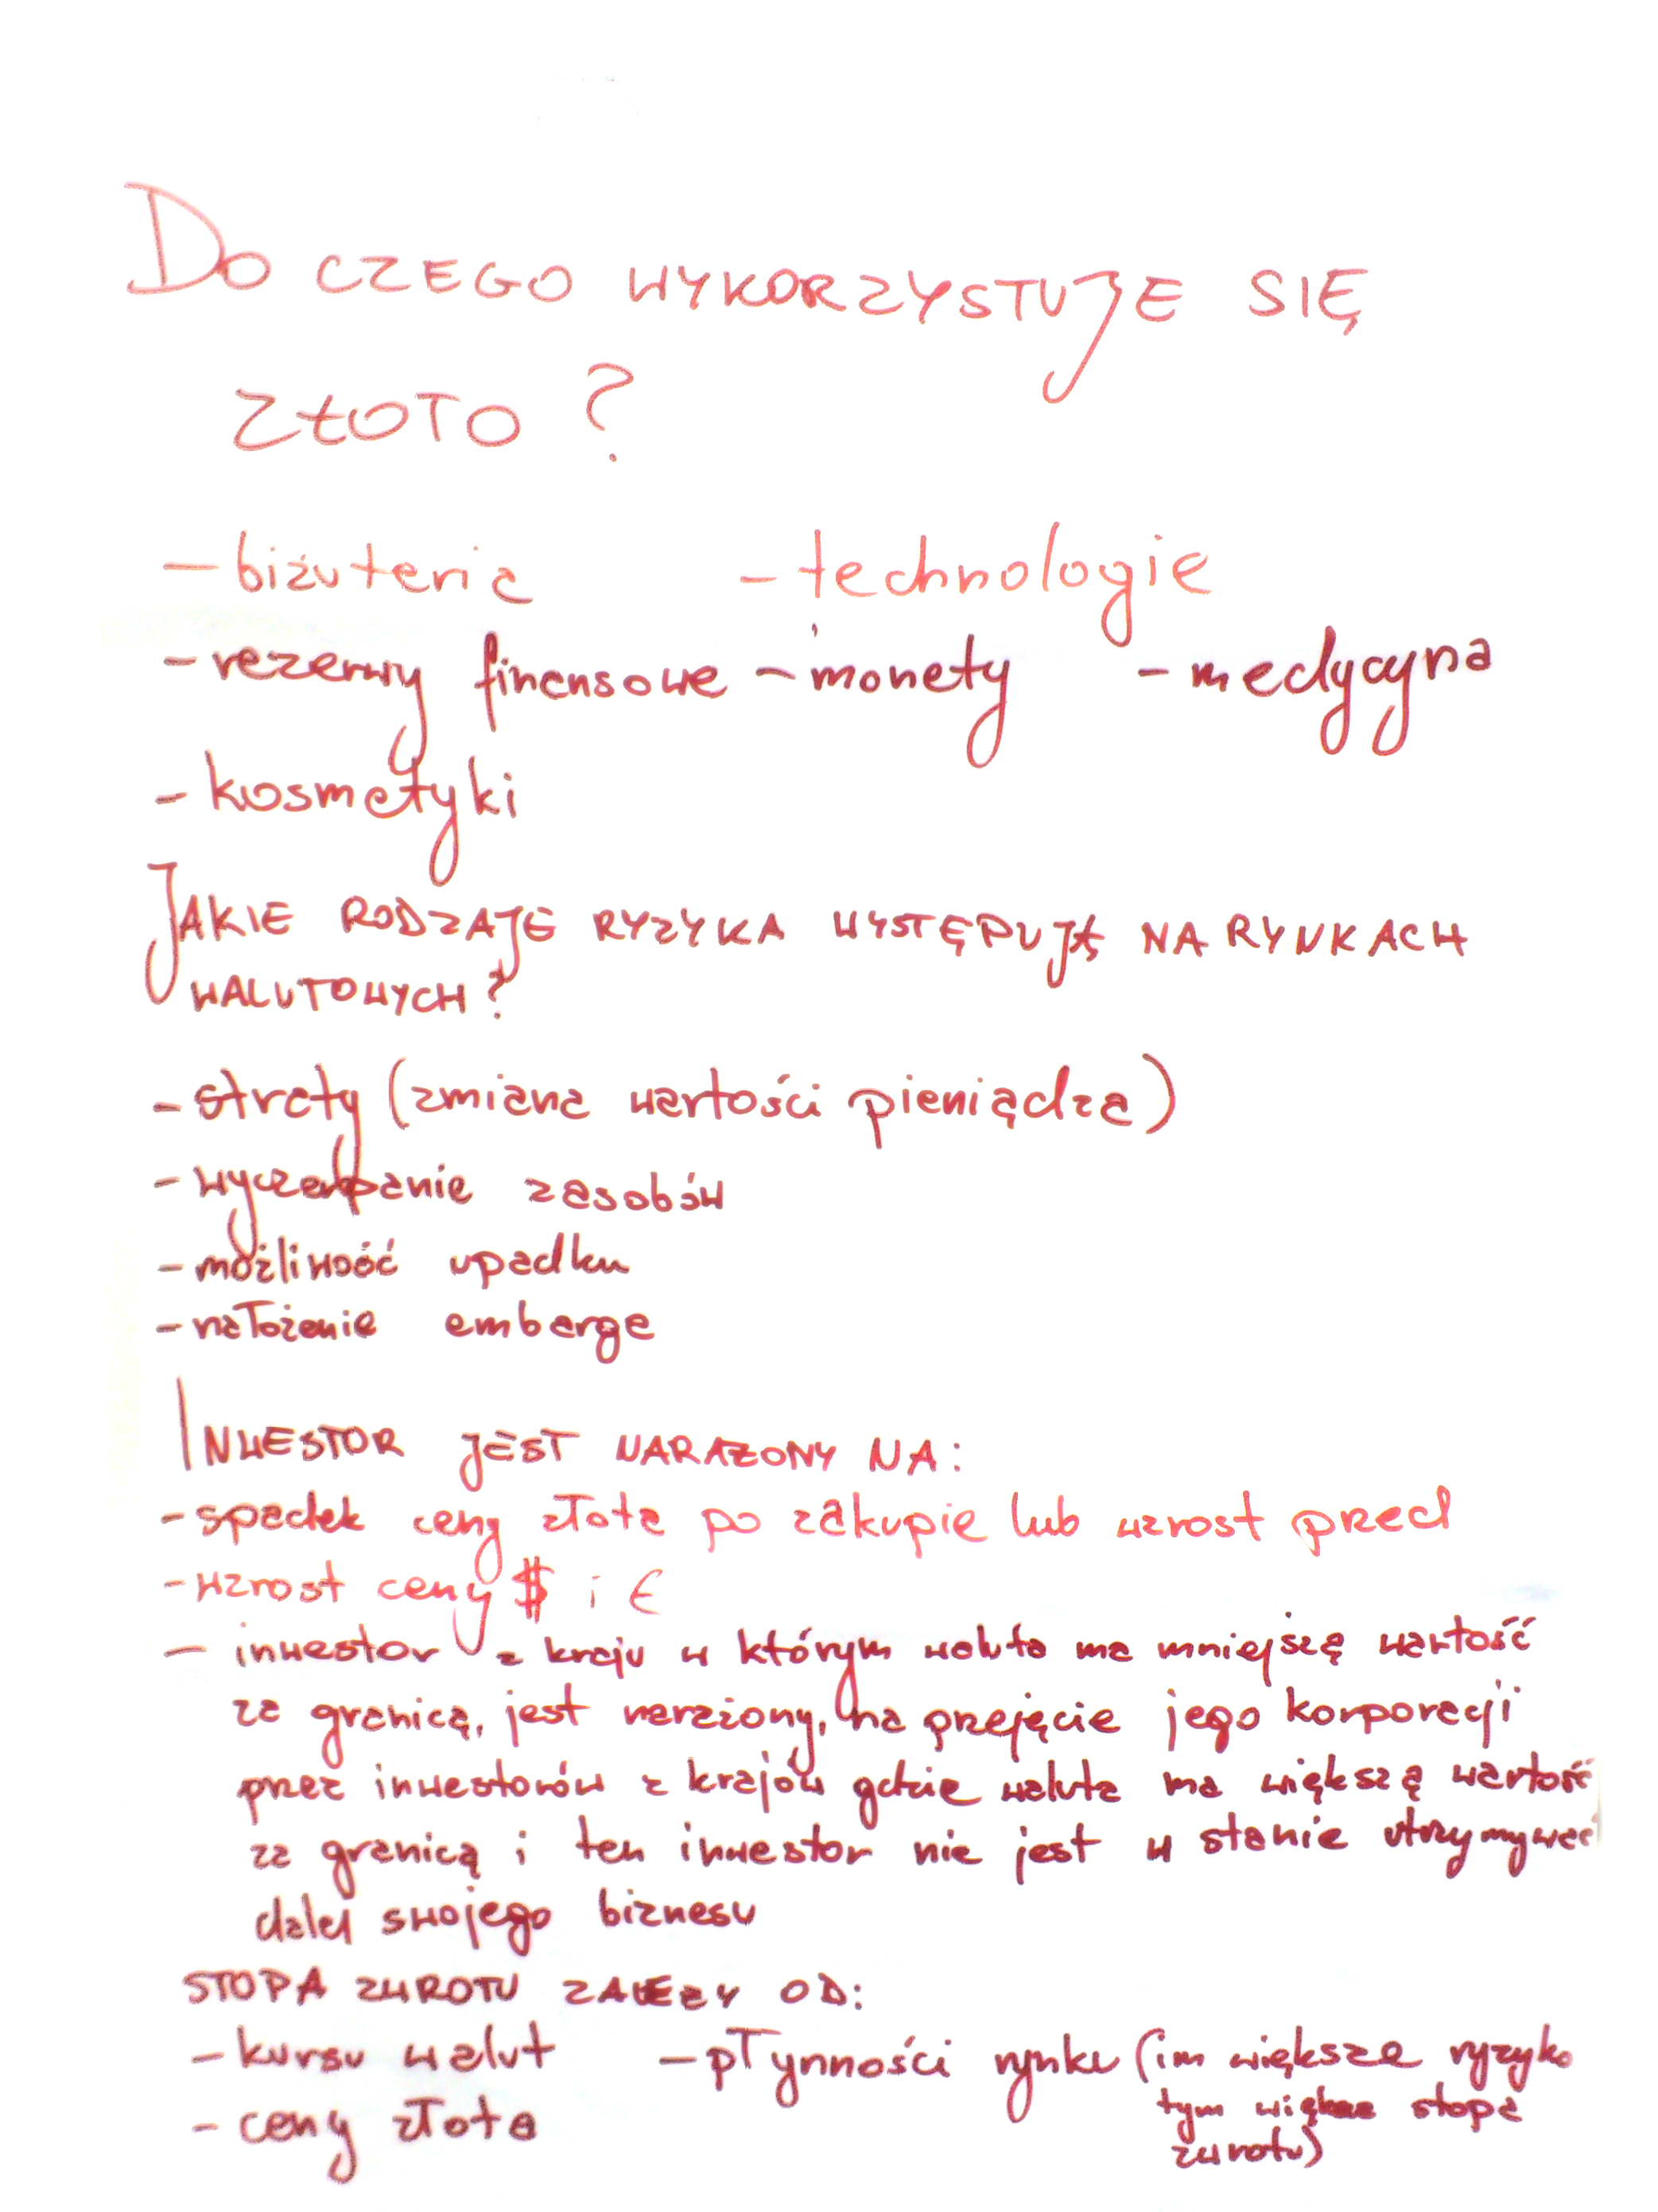 DO CZEGO WYKORZYSTUJE SIĘ
ZŁOTO ?
- biżuteria - technologie
- rezerwy finansowe - monety - medycyna
- kosmetyki
JAKIE RODZAJE RYZYKA WYSTĘPUJĄ NA RYNKACH
WALUTOWYCH ?
- straty (zmiana wartości pieniądza)
- wyczerpanie zasobów
- możliwość upadku
- nałożenie embarga
INWESTOR JEST NARAŻONY NA:
- spadek ceny złota po zakupie lub wzrost przed
- wzrost ceny $ i €
- inwestor z kraju w którym waluta ma mniejszą wartość
za granicą, jest narażony, na przejęcie jego korporacji
przez inwestorów z krajów gdzie waluta ma większą wartość
za granicą i ten inwestor nie jest w stanie utrzymywać
dalej swojego biznesu
STOPA ZWROTU ZALEŻY OD:
- kursu walut - płynności rynku (im większe ryzyko
tym większa stopa
zwrotu)
- ceny złota